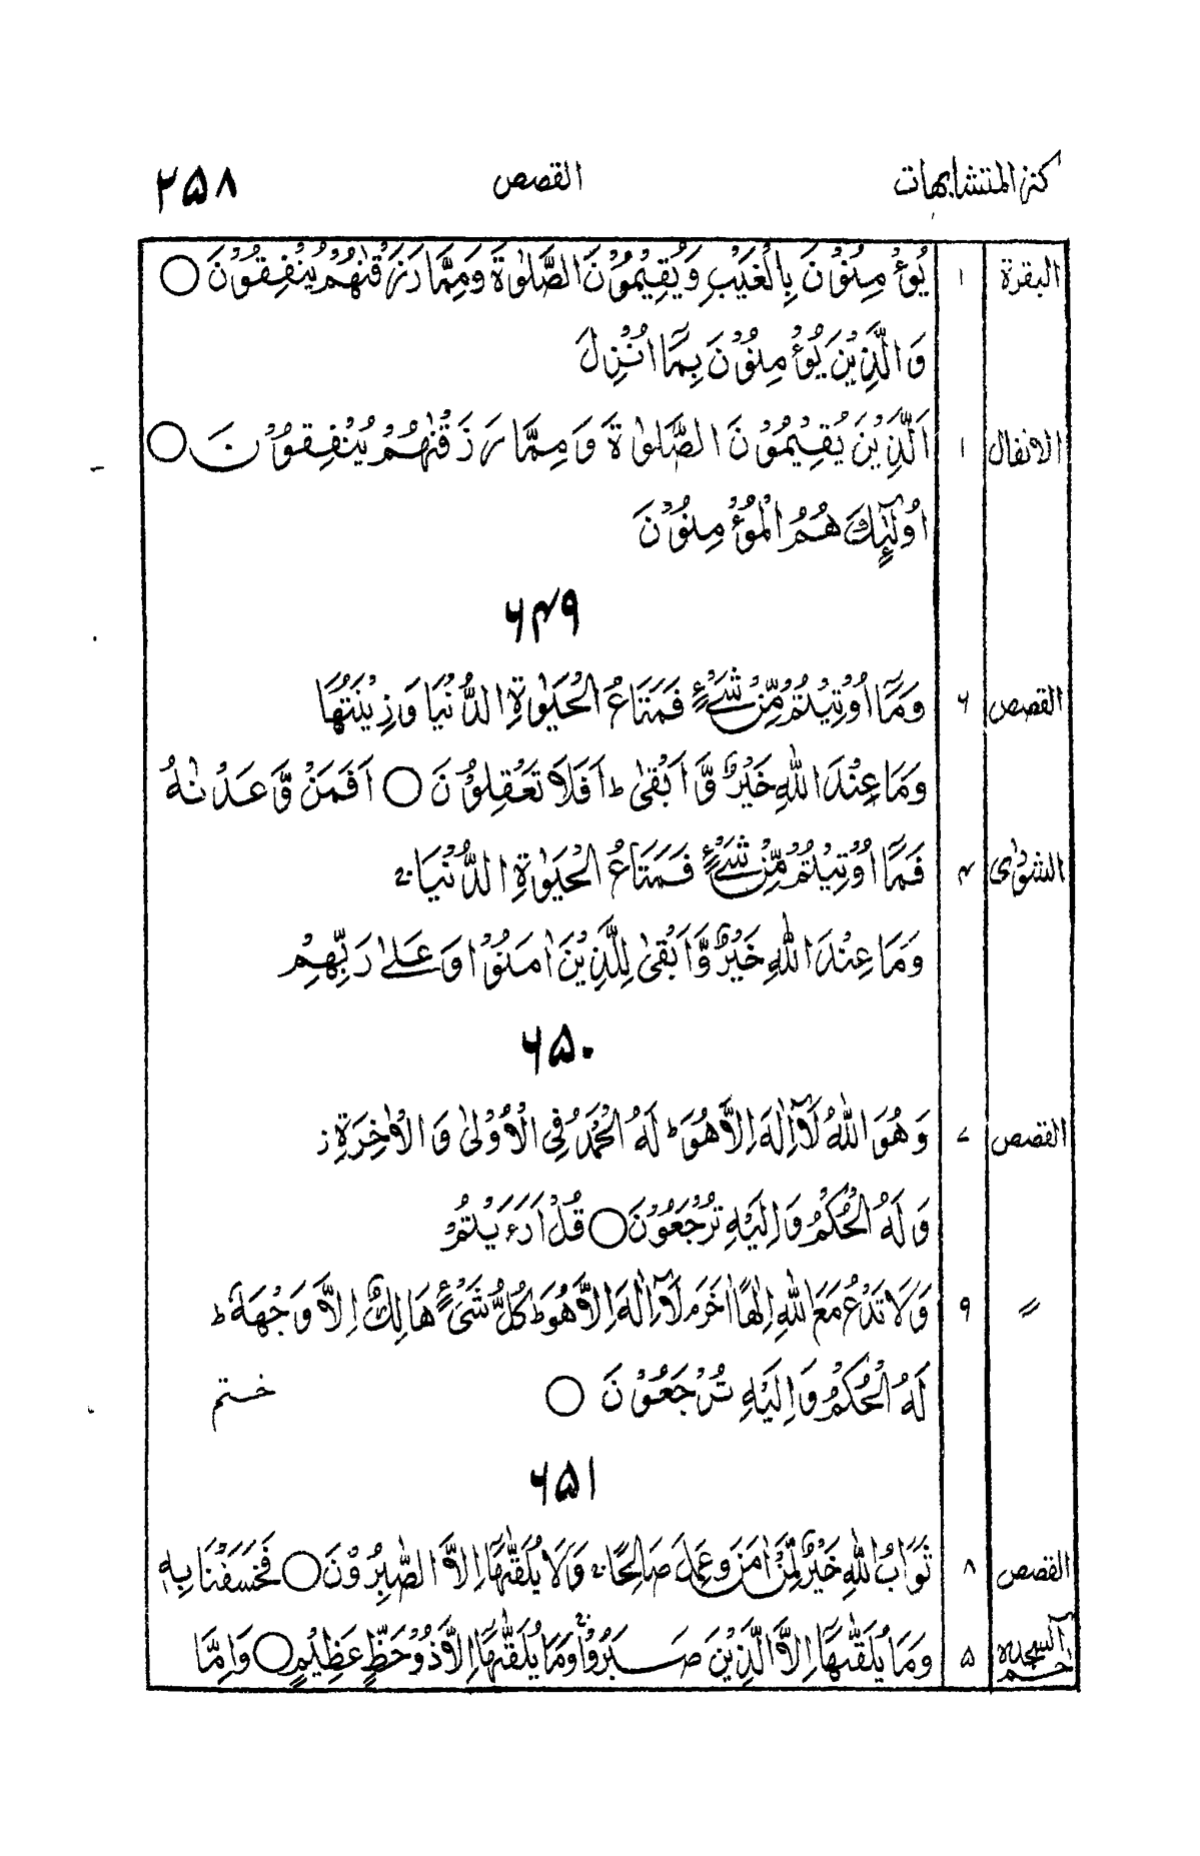 كنز المتشابهات القصص ٢٥٨
البقرة ١ يُؤْمِنُوْنَ بِالْغَيْبِ وَيُقِيْمُوْنَ الصَّلٰوةَ وَمِمَّا رَزَقْنٰهُمْ يُنْفِقُوْنَ ○
وَالَّذِيْنَ يُؤْمِنُوْنَ بِمَآ اُنْزِلَ
الانفال ١ اَلَّذِيْنَ يُقِيْمُوْنَ الصَّلٰوةَ وَمِمَّا رَزَقْنٰهُمْ يُنْفِقُوْنَ ○
اُولٰٓئِكَ هُمُ الْمُؤْمِنُوْنَ
٦٤٩
القصص ٦ وَمَآ اُوْتِيْتُمْ مِّنْ شَيْءٍ فَمَتَاعُ الْحَيٰوةِ الدُّنْيَا وَزِيْنَتُهَا
وَمَا عِنْدَ اللّٰهِ خَيْرٌ وَّاَبْقٰى ؕ اَفَلَا تَعْقِلُوْنَ ○ اَفَمَنْ وَّعَدْنٰهُ
الشورٰى ٤ فَمَآ اُوْتِيْتُمْ مِّنْ شَيْءٍ فَمَتَاعُ الْحَيٰوةِ الدُّنْيَا ۚ
وَمَا عِنْدَ اللّٰهِ خَيْرٌ وَّاَبْقٰى لِلَّذِيْنَ اٰمَنُوْا وَعَلٰى رَبِّهِمْ
٦٥٠
القصص ٧ وَهُوَ اللّٰهُ لَآ اِلٰهَ اِلَّا هُوَ ؕ لَهُ الْحَمْدُ فِي الْاُوْلٰى وَالْاٰخِرَةِ ز
وَلَهُ الْحُكْمُ وَاِلَيْهِ تُرْجَعُوْنَ ○ قُلْ اَرَءَيْتُمْ
〃 ٩ وَلَا تَدْعُ مَعَ اللّٰهِ اِلٰهًا اٰخَرَ م لَآ اِلٰهَ اِلَّا هُوَ ؕ كُلُّ شَيْءٍ هَالِكٌ اِلَّا وَجْهَهٗ ؕ
لَهُ الْحُكْمُ وَاِلَيْهِ تُرْجَعُوْنَ ○ ختم
٦٥١
القصص ٨ ثَوَابُ اللّٰهِ خَيْرٌ لِّمَنْ اٰمَنَ وَعَمِلَ صَالِحًا ۚ وَلَا يُلَقّٰهَآ اِلَّا الصّٰبِرُوْنَ ○ فَخَسَفْنَا بِهٖ
حٰم السجدة ٥ وَمَا يُلَقّٰهَآ اِلَّا الَّذِيْنَ صَبَرُوْا ۚ وَمَا يُلَقّٰهَآ اِلَّا ذُوْ حَظٍّ عَظِيْمٍ ○ وَاِمَّا